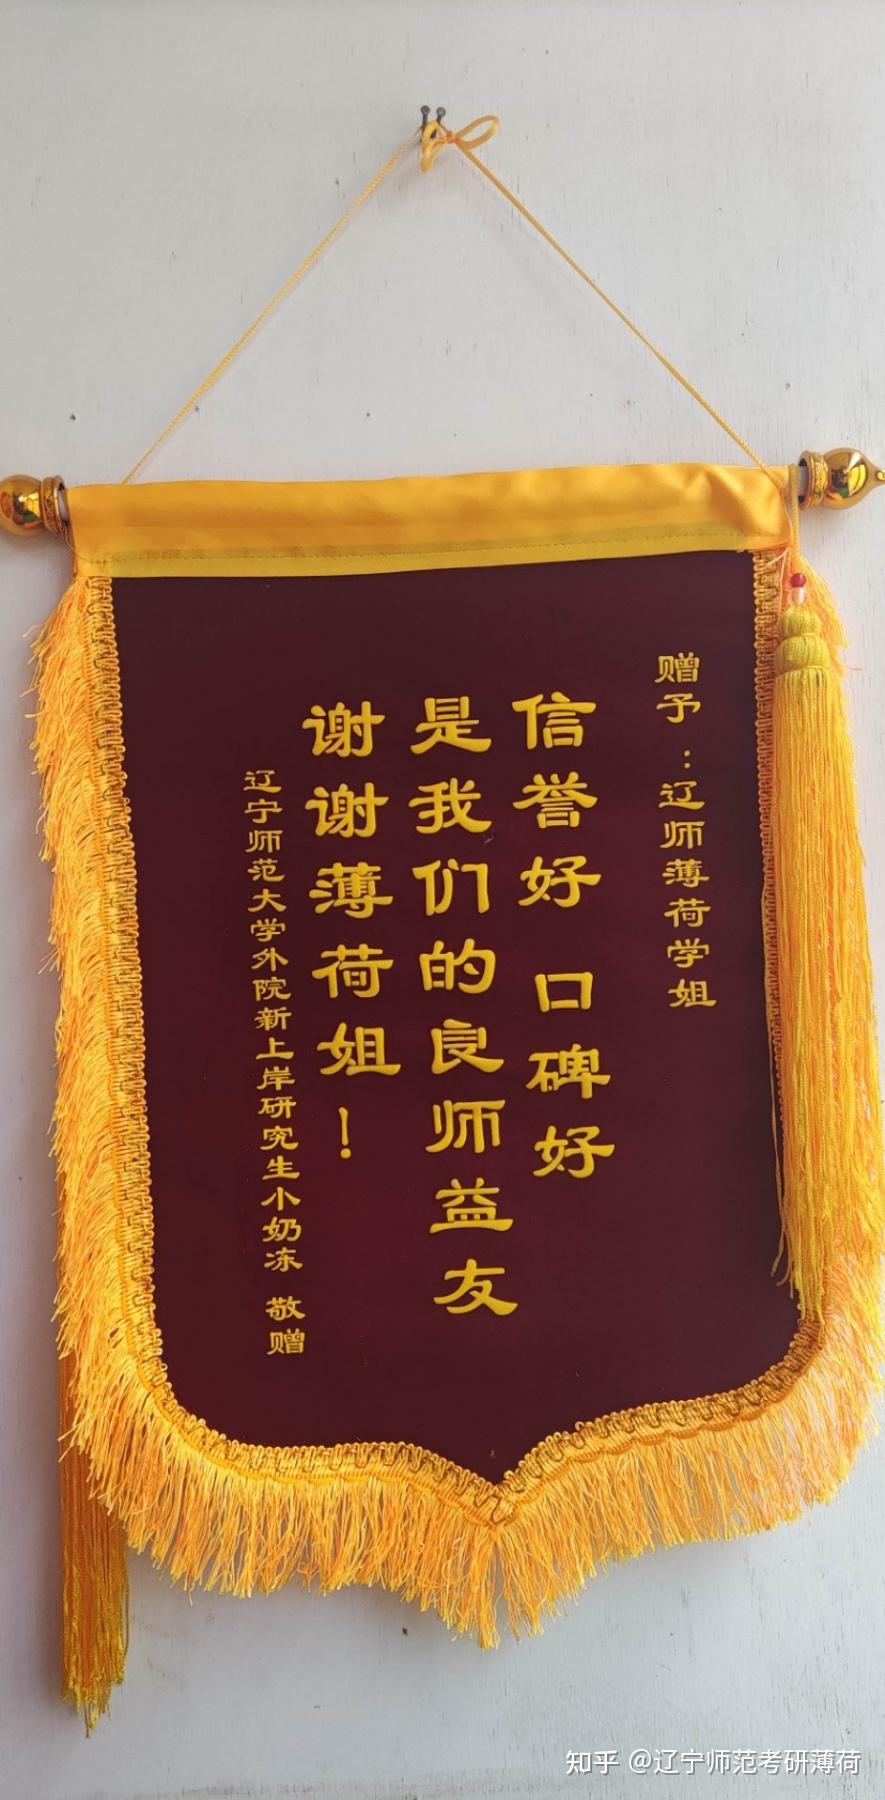 赠予：辽师薄荷学姐
信誉好 口碑好
是我们的良师益友
谢谢薄荷姐！
辽宁师范大学外院新上岸研究生小奶冻 敬赠
知乎 @辽宁师范考研薄荷